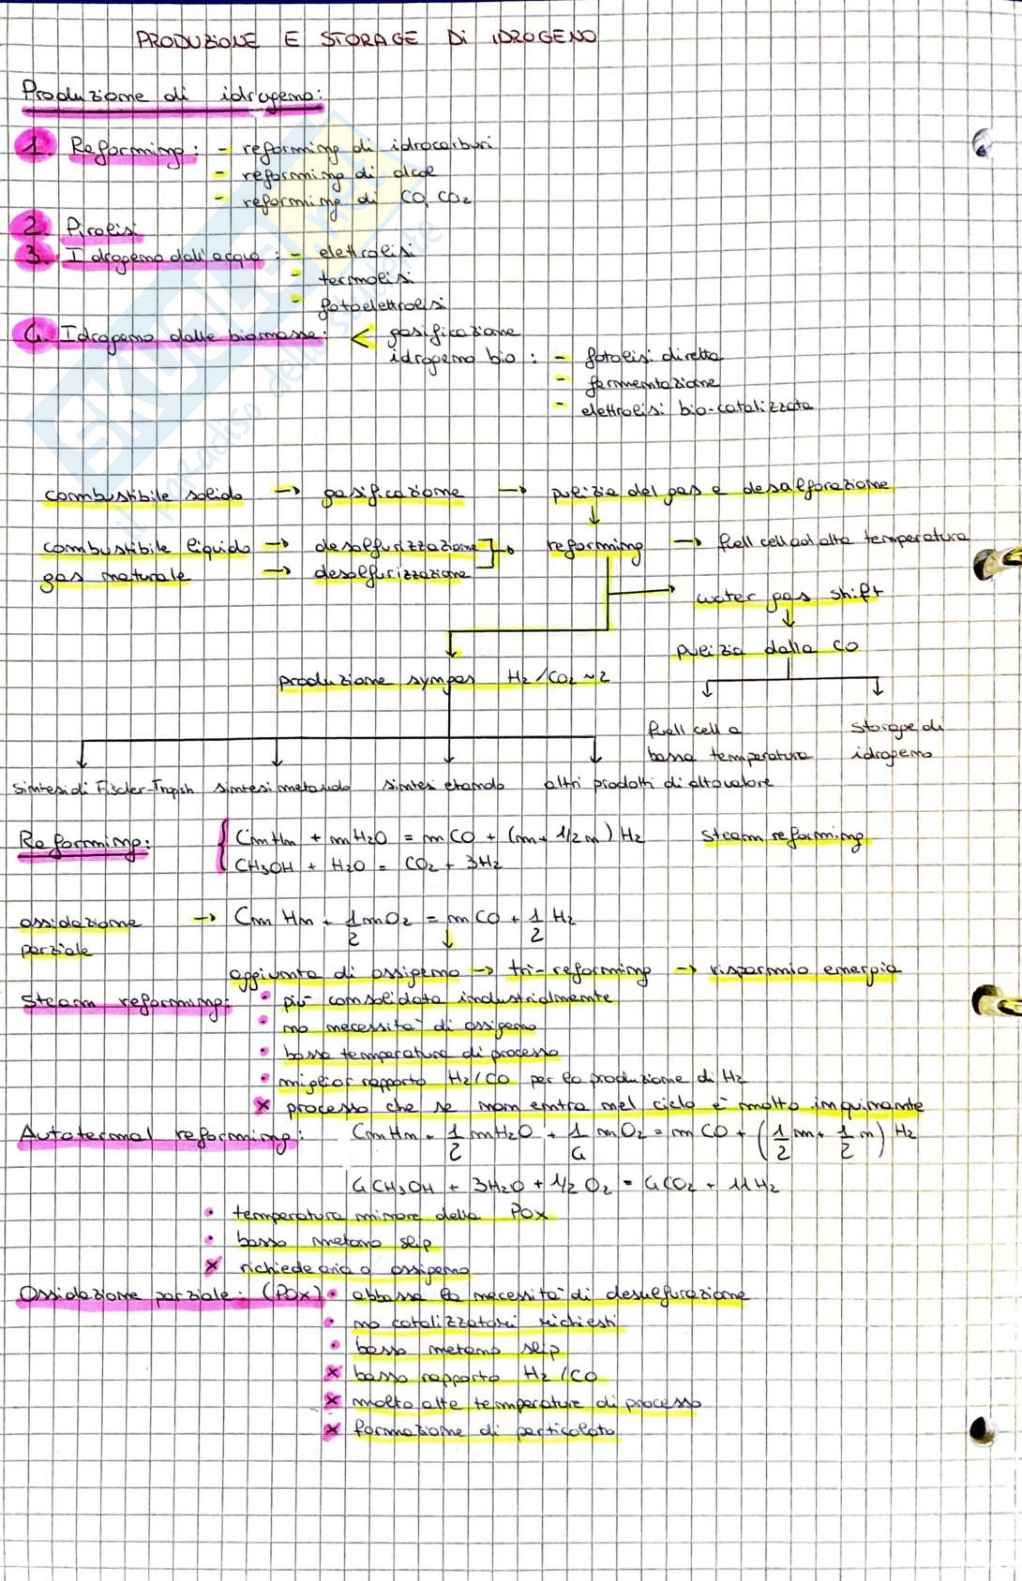 PRODUZIONE E STORAGE DI IDROGENO
Produzione di idrogeno:
1. Reforming: - reforming di idrocarburi
- reforming di alcol
- reforming di CO, CO2
2. Pirolisi
3. Idrogeno dall'acqua: - elettrolisi
- termolisi
- fotoelettrolisi
4. Idrogeno dalle biomasse: < gasificazione
idrogeno bio: - fotolisi diretta
- fermentazione
- elettrolisi bio-catalizzata
combustibile solido → gasificazione → pulizia del gas e desolforazione
combustibile liquido → desolfurizzazione → reforming → fuell cell ad alta temperatura
gas naturale → desolfurizzazione
water gas shift
pulizia dalla CO
produzione syngas H2/CO2 ~ 2
fuell cell a bassa temperatura
storage di idrogeno
sintesi di Fischer-Tropsh sintesi metanolo sintesi etanolo altri prodotti di alto valore
Reforming: { CmHn + mH2O = mCO + (m + 1/2 n) H2 steam reforming
CH3OH + H2O = CO2 + 3H2
ossidazione parziale → CmHn + 1/2 mO2 = mCO + 1/2 H2
aggiunta di ossigeno → tri-reforming → risparmio energia
Steam reforming: • più consolidata industrialmente
• no necessità di ossigeno
• bassa temperatura di processo
• miglior rapporto H2/CO per la produzione di H2
× processo che se non entra nel ciclo è molto inquinante
Autotermal reforming: CmHn + 1/2 mH2O + 1/4 mO2 = mCO + (1/2 m + 1/2 n) H2
4CH3OH + 3H2O + 1/2 O2 = 4CO2 + 11H2
• temperatura minore della POx
• basso metano slip
× richiede aria o ossigeno
Ossidazione parziale: (POx) • abbassa la necessità di desulfurazione
• no catalizzatori richiesti
• basso metano slip
× basso rapporto H2/CO
× molto alte temperature di processo
× formazione di particolato